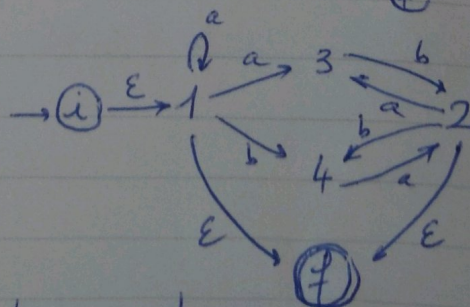 a
a 3 b
i ε 1 a 2
b b
4 a
ε ε
f